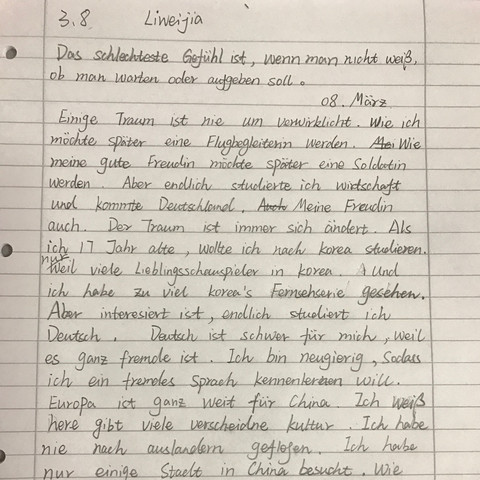 3.8 Liweijia
Das schlechteste Gefühl ist, wenn man nicht weiß,
ob man warten oder aufgeben soll.
08. März
Einige Traum ist nie um verwirklicht. Wie ich
möchte später eine Flugbegleiterin werden. Wie
meine gute Freudin möchte später eine Soldatin
werden. Aber endlich studierte ich wirtschaft
und kommte Deutschland. Meine Freudin
auch. Der Traum ist immer sich ändert. Als
ich 17 Jahr alte, wollte ich nach korea studieren.
nur Weil viele Lieblingsschauspieler in korea. Und
ich habe zu viel korea's Fernsehserie gesehen.
Aber interesiert ist, endlich studiert ich
Deutsch. Deutsch ist schwer für mich, weil
es ganz fremde ist. Ich bin neugierig, Sodass
ich ein fremdes Sprach kennenlernen will.
Europa ist ganz weit für China. Ich weiß
here gibt viele verscheidne kultur. Ich habe
nie nach auslandern geflogen. Ich habe
nur einige Stadt in China besucht. Wie